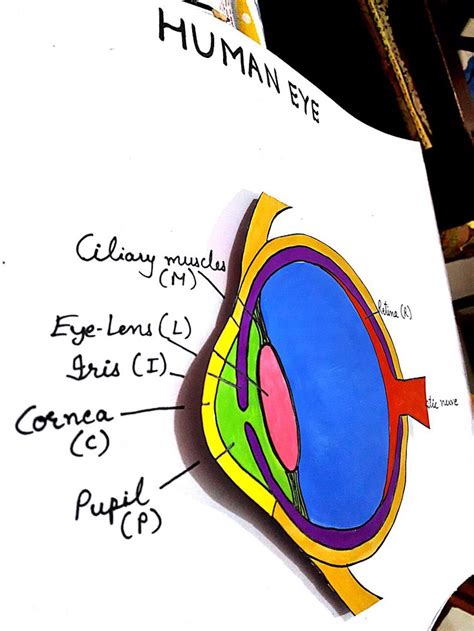 HUMAN EYE
Ciliary muscles
(M)
Eye-Lens (L)
Iris (I)
Cornea
(C)
Pupil
(P)
Retina (R)
tic nerve